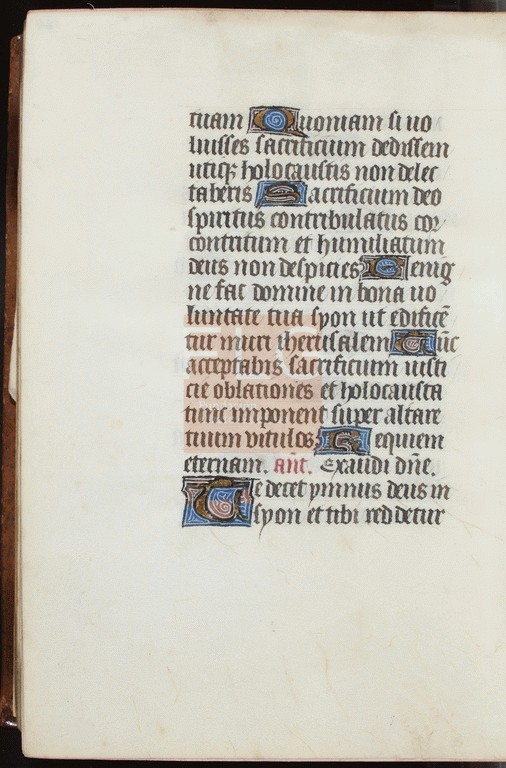 tuam Quoniam si uo
luisses sacrificium dedissem
utiqꝫ holocaustis non delec
taberis Sacrificium deo
spiritus contribulatus cor
contritum et humiliatum
deus non despicies Benig
ne fac domine in bona uo
luntate tua syon ut edificē
tur muri iherusalem Tūc
acceptabis sacrificium iusti
cie oblationes et holocausta
tunc imponent super altare
tuum vitulos Requiem
eternam. añt. Exaudi dñe.
Te decet ymnus deus in
syon et tibi reddetur